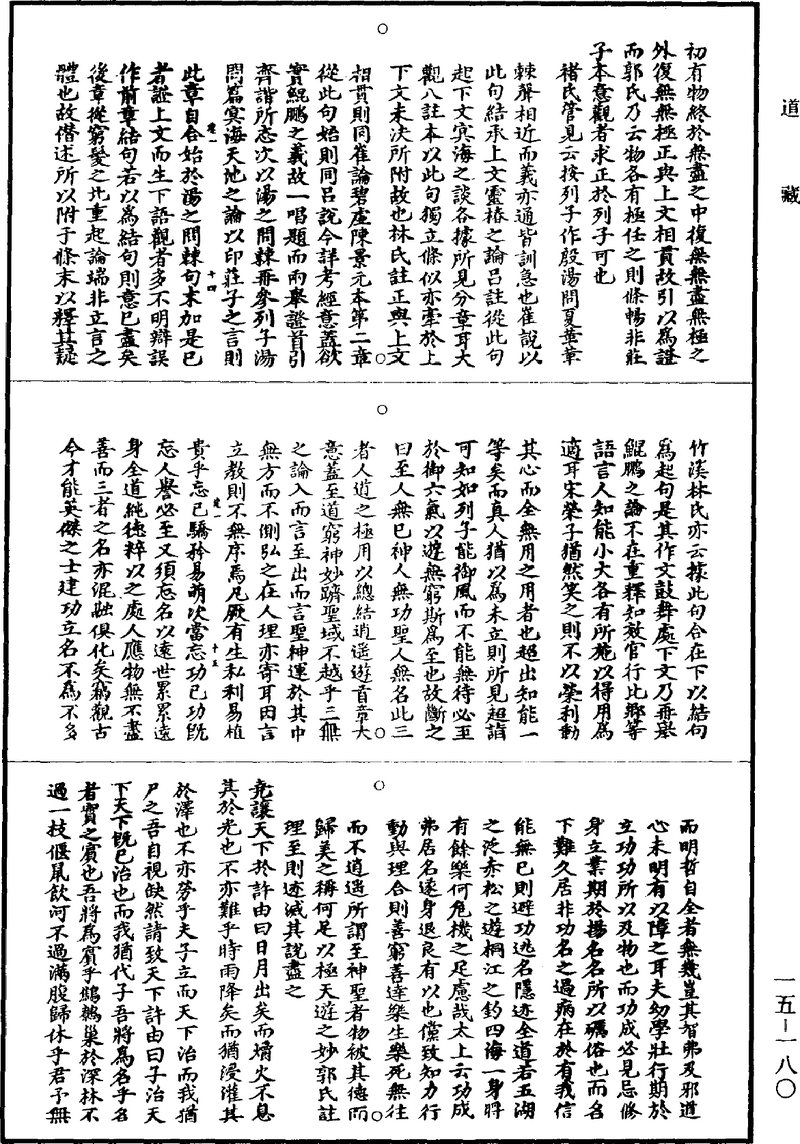 道藏
初有物終於無盡之中復無無盡無極之
外復無無極正與上文相貫故引以為證
而郭氏乃云物各有極任之則條暢非莊
子本意觀者求正於列子可也
褚氏管見云按列子作殷湯問夏革革
棘聲相近而義亦通皆訓急也崔說以
此句結承上文靈椿之論呂註從此句
起下文冥海之談各據所見分章耳大
觀八註本以此句獨立條似亦牽於上
下文未決所附故也林氏註正與上文
相貫則同崔論碧虛陳景元本第二章
從此句始則同呂說今詳考經意蓋欲
實鯤鵬之義故一唱題而兩舉證首引
齊諧所志次以湯之問棘再參列子湯
問篇冥海天池之論以印莊子之言則
卷一 十四
此章自合始於湯之問棘句末加是已
者證上文而生下語觀者多不明辯誤
作前章結句若以為結句則意已盡矣
後章從窮髮之北重起論端非立言之
體也故僭述所以附于條末以釋其疑
竹溪林氏亦云據此句合在下以結句
為起句是其作文鼓舞處下文乃再舉
鯤鵬之論不在重釋知效官行比鄉等
語言人知能小大各有所施以得用為
適耳宋榮子猶然笑之則不以榮利動
其心而全無用之用者也超出知能一
等矣而真人猶以為未立則所見超詣
可知如列子能御風而不能無待必至
於御六氣以遊無窮斯為至也故斷之
曰至人無已神人無功聖人無名此三
者人道之極用以總結逍遙遊首章大
意蓋至道窮神妙躋聖域不越乎三無
之論入而言至出而言聖神運於其中
無方而不測弘之在人理亦寄耳因言
立教則不無序焉凡厥有生私利易植
卷一 十五
貴乎忘已驕矜易萌次當忘功已功既
忘人譽必至又須忘名以遠世累累遠
身全道純德粹以之處人應物無不盡
善而三者之名亦混融俱化矣竊觀古
今才能英傑之士建功立名不為不多
而明哲自全者無幾豈其智弗及邪道
心未明有以障之耳夫幼學壯行期於
立功功所以及物也而功成必見忌修
身立業期於揚名名所以礪俗也而名
下難久居非功名之過病在於有我信
能無已則避功逃名隱迹全道若五湖
之泛赤松之遊桐江之釣四海一身將
有餘樂何危機之足慮哉太上云功成
弗居名遂身退良有以也儻致知力行
動與理合則善窮善達樂生樂死無往
而不逍遙所謂至神聖者物被其德而
歸美之稱何足以極天遊之妙郭氏註
理至則迹滅其說盡之
堯讓天下於許由曰日月出矣而爝火不息
其於光也不亦難乎時雨降矣而猶浸灌其
於澤也不亦勞乎夫子立而天下治而我猶
尸之吾自視缺然請致天下許由曰子治天
下天下既已治也而我猶代子吾將為名乎名
者實之賓也吾將為賓乎鷦鷯巢於深林不
過一枝偃鼠飲河不過滿腹歸休乎君予無
一五-一八〇